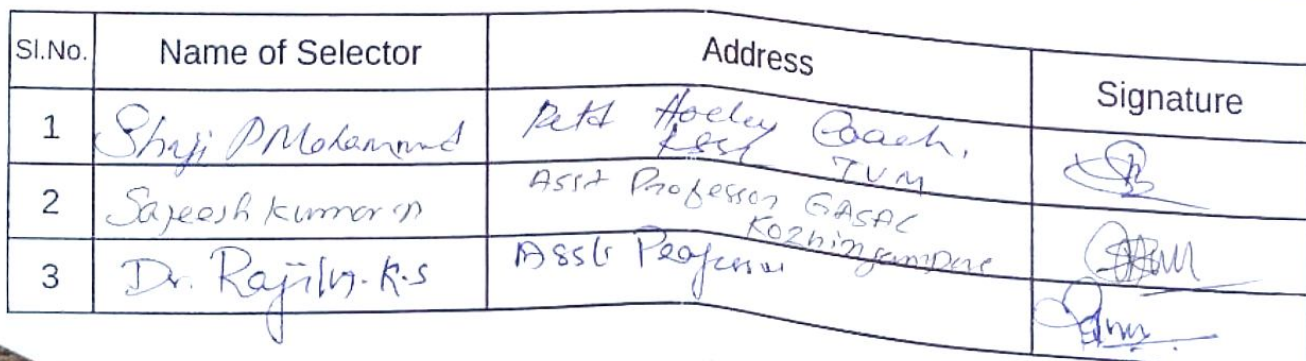 Sl.No. Name of Selector Address Signature
1 Shaji P Mohammed Retd Hockey Coach,
TVM
2 Sajeesh Kumar n Asst Professor GASAC
Kozhinjampara
3 Dr. Rajil K.S Asst Professor